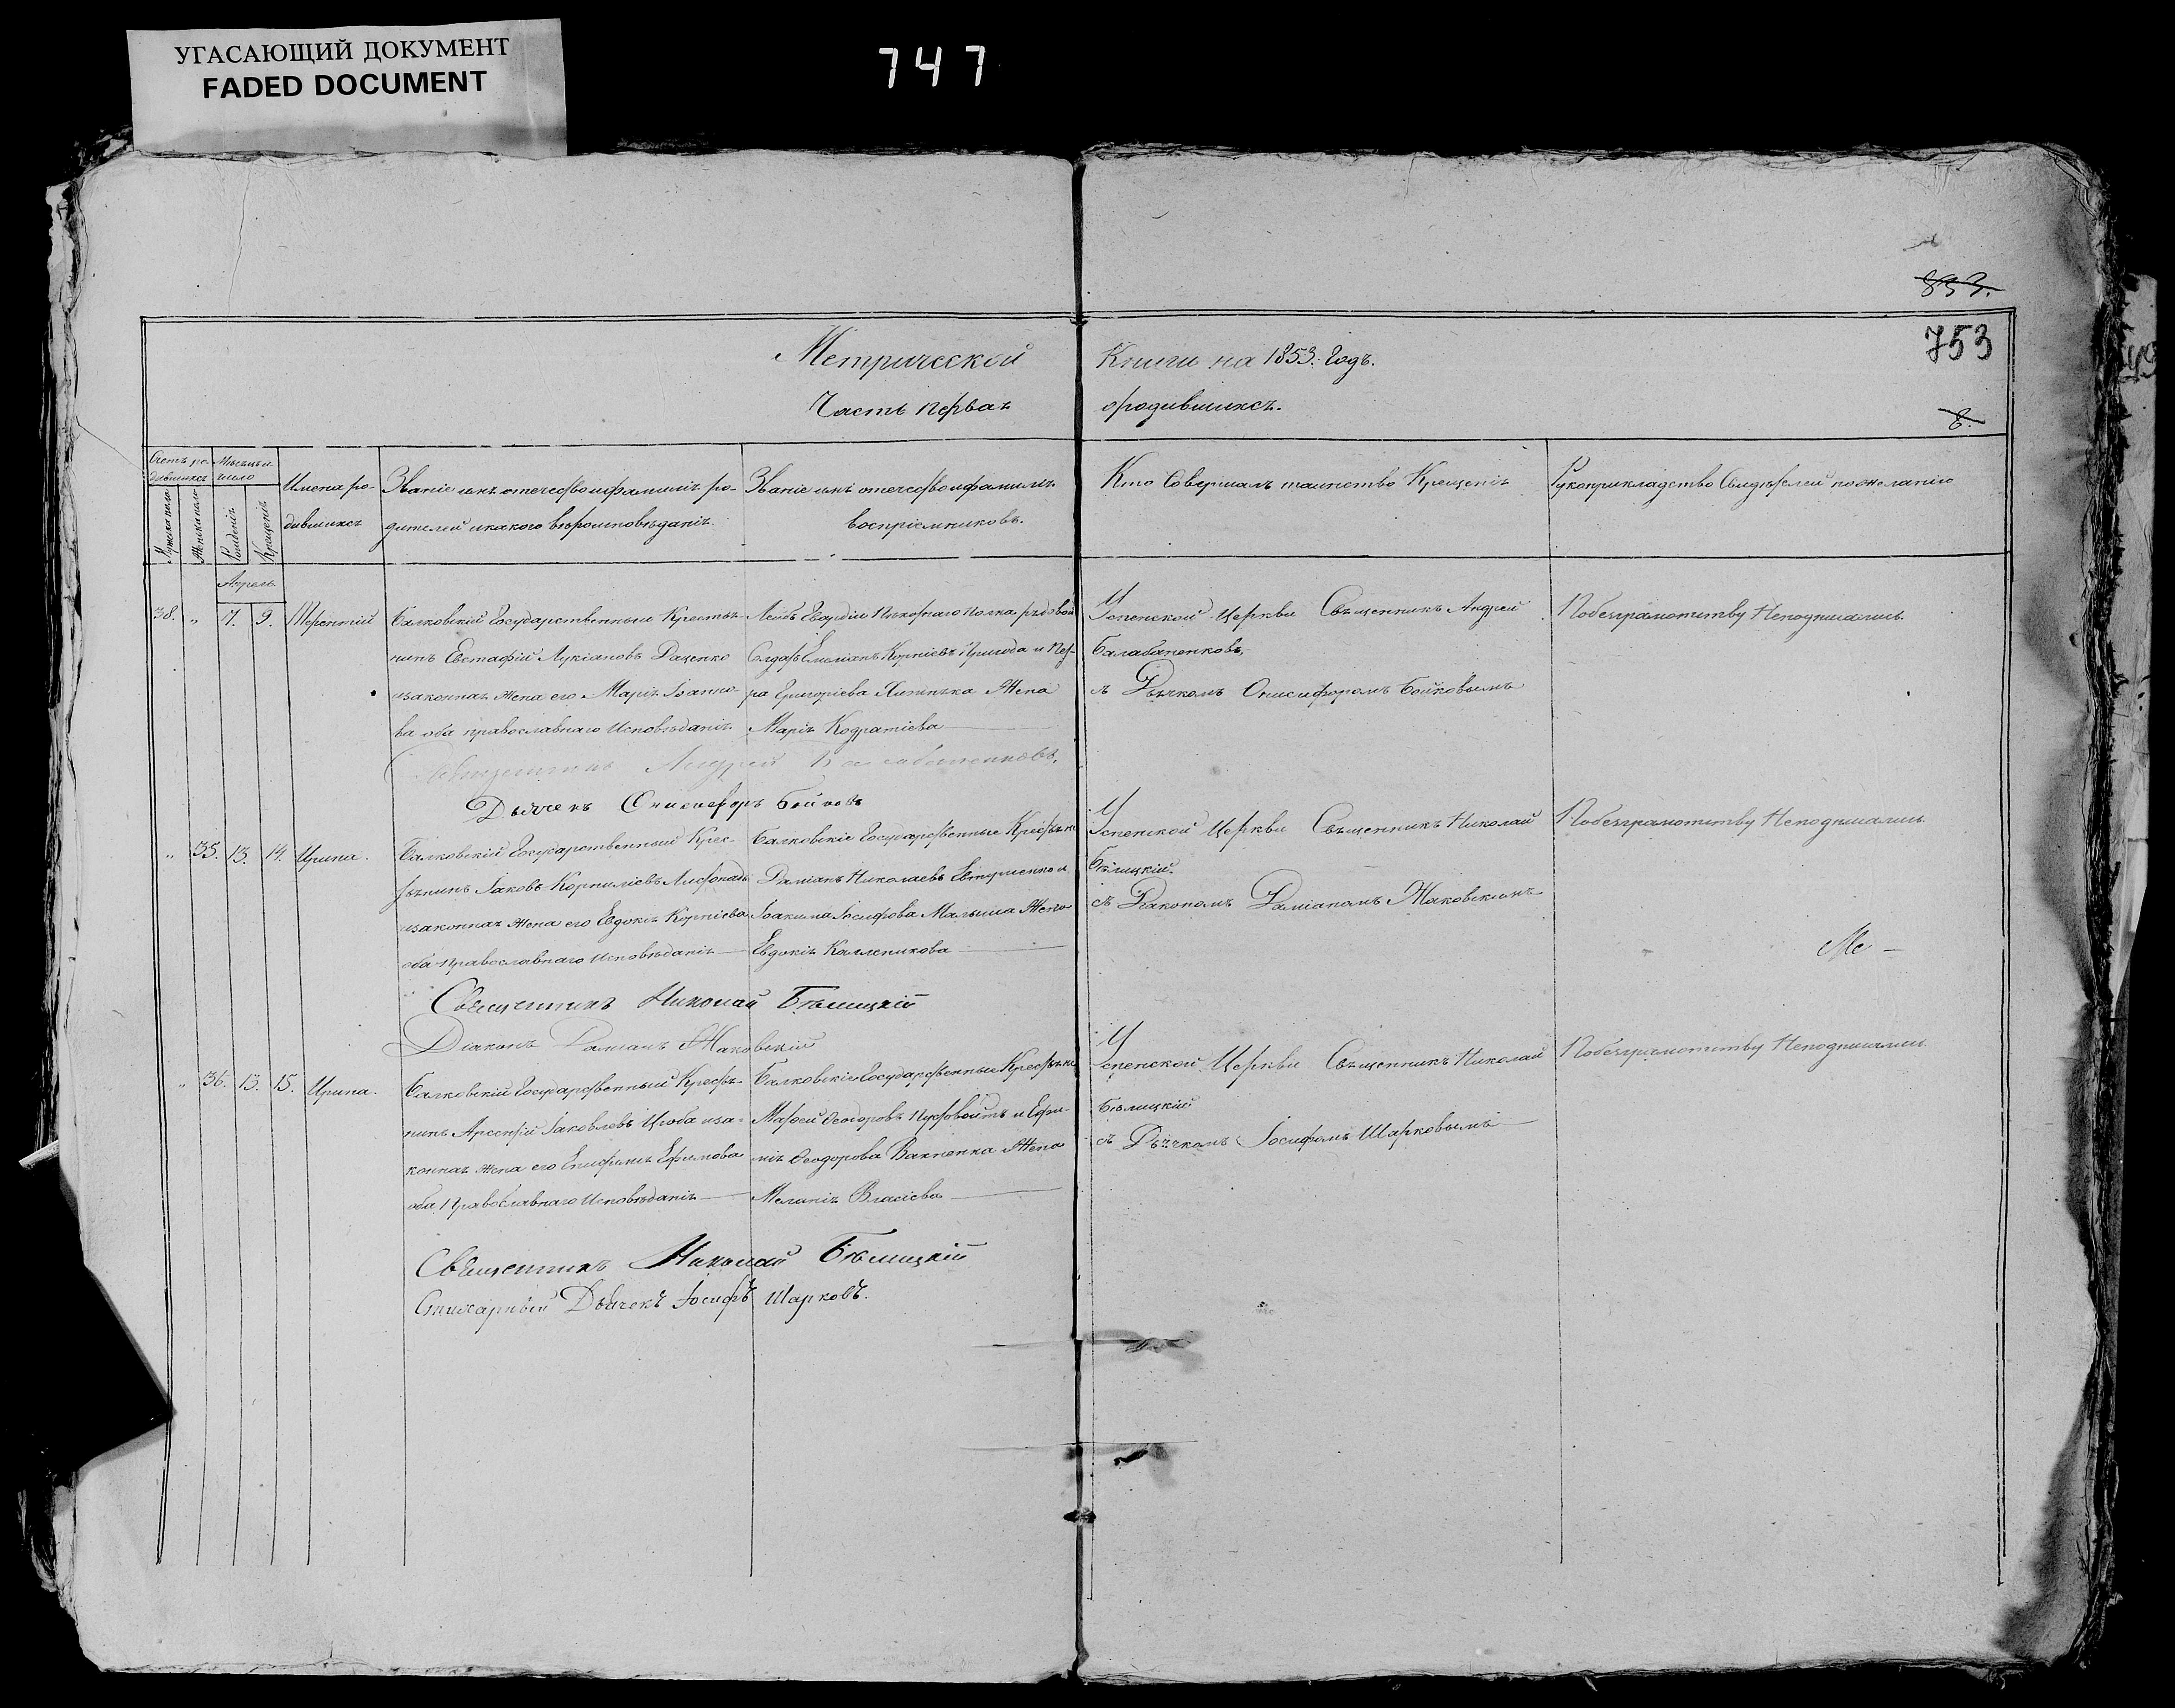 УГАСАЮЩИЙ ДОКУМЕНТ
FADED DOCUMENT
747
853.
753
Метрической Книги на 1853. Годъ.
Часть первая о родившихся.
8.
Счетъ родившихся
Мѣсяцъ и число
Мужеска пола
Женска пола
Рожденія
Крещенія
Имена родившихся
Званіе имя отечество и фамилія родителей и какого вѣроисповѣданія.
Званіе имя отечество и фамилія воспріемниковъ.
Кто Совершалъ таинство Крещенія
Рукоприкладство Свидѣтелей по желанію
Апрель
38. " 7. 9. Терентій
Балковскій Государственный Крестья-
нинъ Евстафій Лукіановъ Даценко
и законная жена его Марія Іоанно-
ва оба православнаго Исповѣданія
Лейбъ Гвардіи Пѣхотнаго полка рядовой
Солдатъ Емеліянъ Корніевъ Пригода и
Григоріева Жена
Марія Кодратіева
Успенской Церкви Священникъ Андрей
Балабаненковъ,
съ Дьячкомъ Онисифоромъ Бойковымъ
По безграмотству Неподписались.
Священникъ Андрей Балабаненковъ.
Дьячекъ Онисифоръ Бойковъ
" 35. 13. 14. Ирина.
Балковскій Государственный Крес-
тьянинъ Іаковъ Корниліевъ Листопадъ
и законная жена его Евдокія Корніева
оба православнаго Исповѣданія
Балковскіе Государственные Крестьяне
Даміанъ Николаевъ Евтушенко и
Іоакима Іосифова Малыша Жена
Евдокія Каллиникова
Успенской Церкви Священникъ Николай
Бѣлицкій.
съ Діакономъ Даміаномъ Маковскимъ
По безграмотству Неподписались.
Ме -
Священникъ Николай Бѣлицкій
Діаконъ Даміанъ Маковскій
" 36. 13. 15. Ирина.
Балковскій Государственный Крестья-
нинъ Арсеній Іаковлевъ Цюба и за-
конная жена его Епифанія Ефимова
оба Православнаго Исповѣданія
Балковскіе Государственные Крестьяне
Матфей Феодоровъ Пустовойтъ и Ефи-
мія Феодорова Вакпенка Жена
Меланія Власіева
Успенской Церкви Священникъ Николай
Бѣлицкій
съ Дьячкомъ Іосифомъ Шарковымъ
По безграмотству Неподписались.
Священникъ Николай Бѣлицкій
Стихарный Дьячекъ Іосифъ Шарковъ.